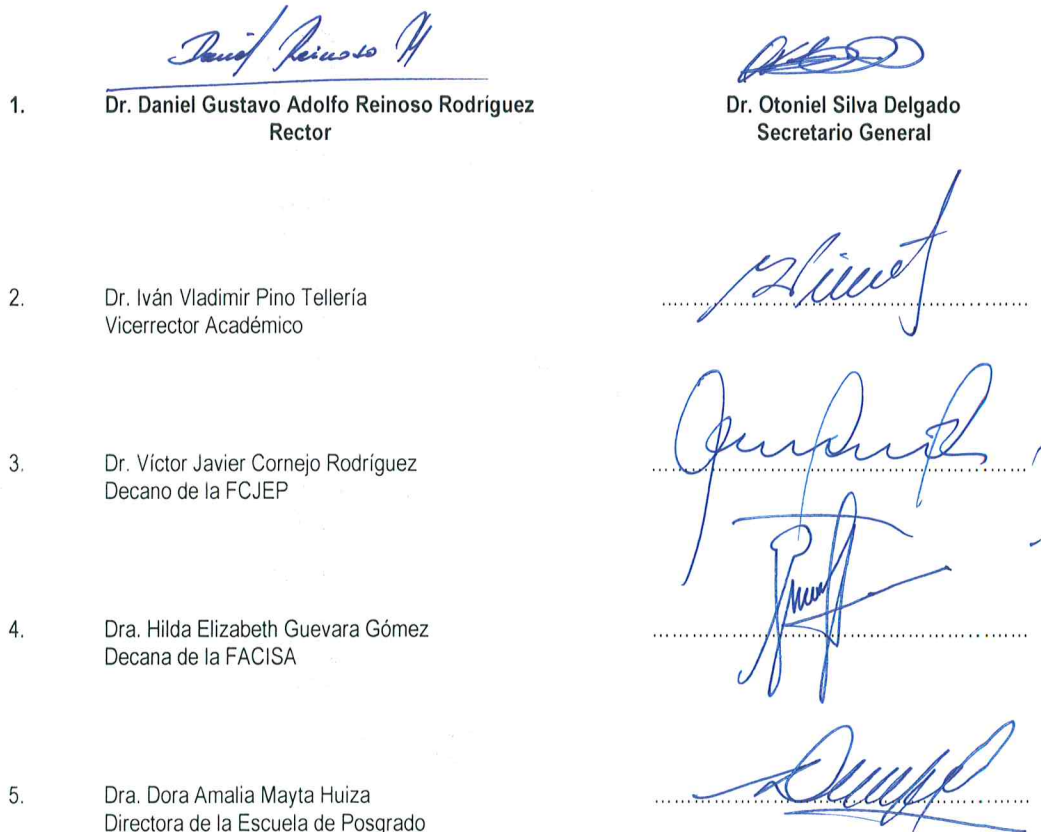 Daniel Reinoso R
1. Dr. Daniel Gustavo Adolfo Reinoso Rodríguez
Rector
Dr. Otoniel Silva Delgado
Secretario General
2. Dr. Iván Vladimir Pino Tellería
Vicerrector Académico
3. Dr. Víctor Javier Cornejo Rodríguez
Decano de la FCJEP
4. Dra. Hilda Elizabeth Guevara Gómez
Decana de la FACISA
5. Dra. Dora Amalia Mayta Huiza
Directora de la Escuela de Posgrado